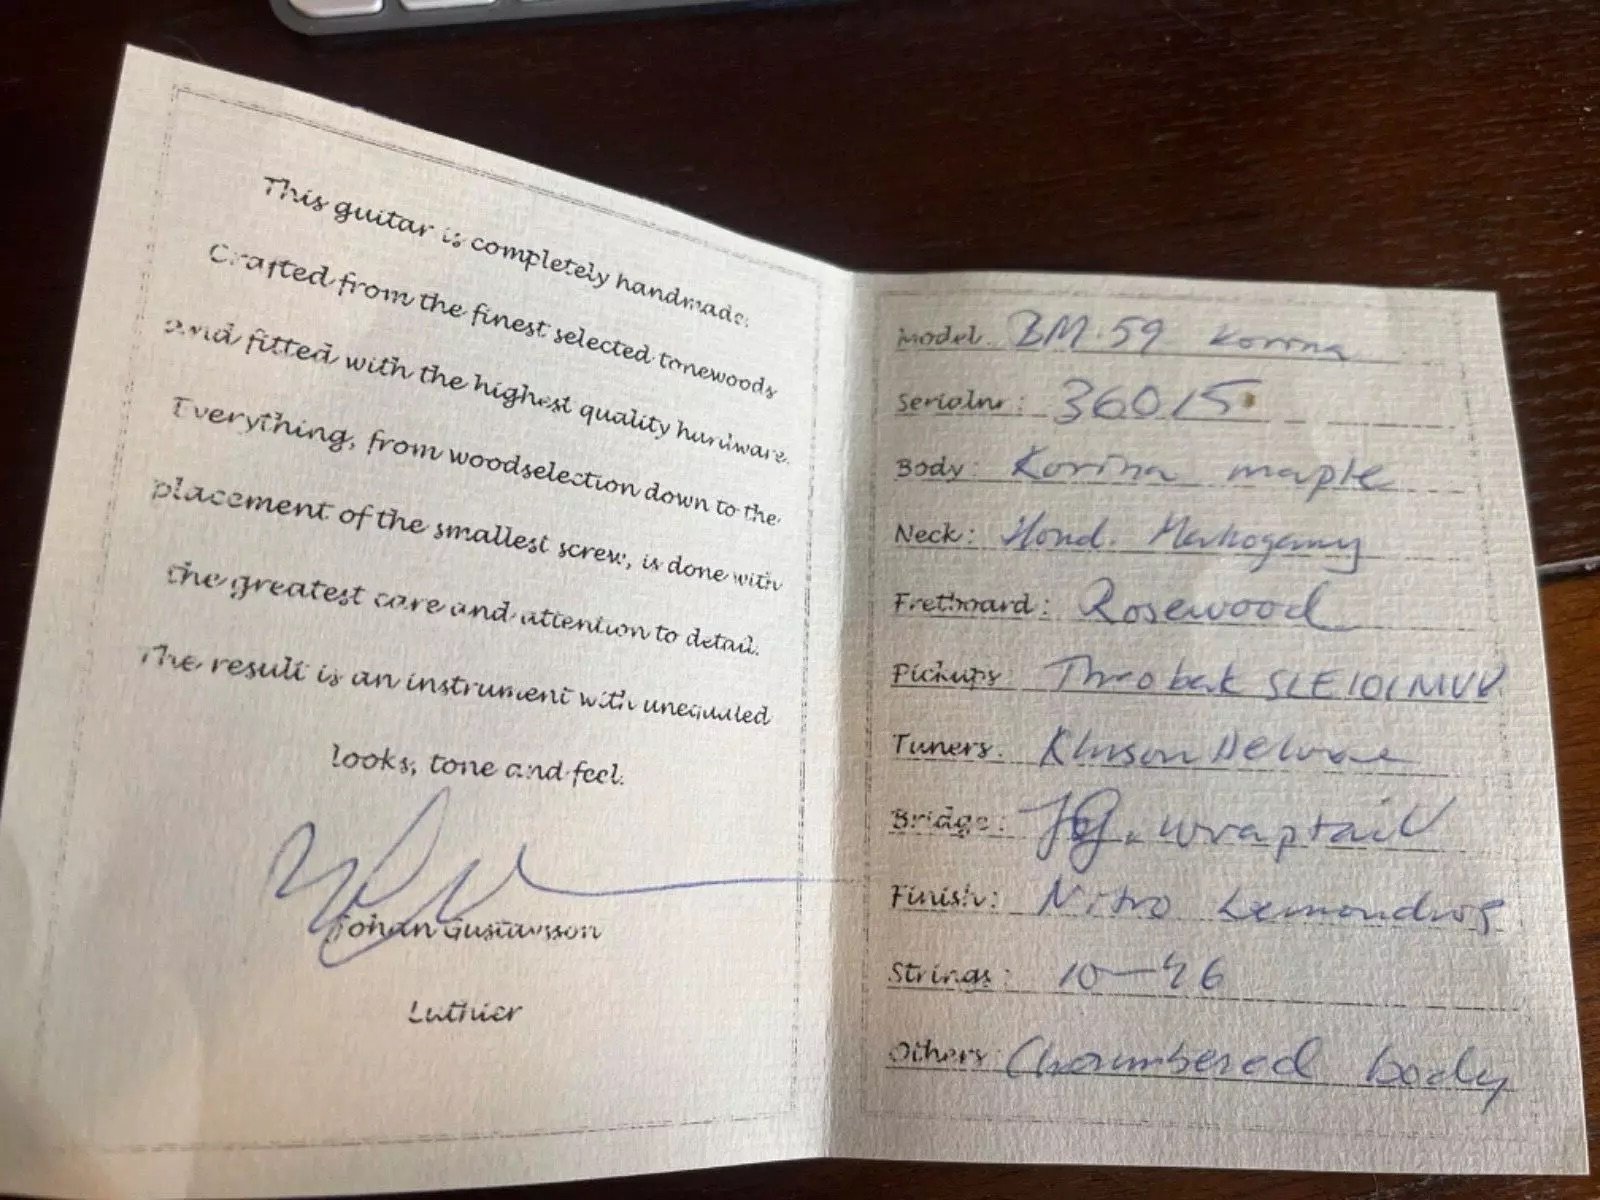 This guitar is completely handmade.
Crafted from the finest selected tonewoods
and fitted with the highest quality hardware.
Everything, from woodselection down to the
placement of the smallest screw, is done with
the greatest care and attention to detail.
The result is an instrument with unequaled
looks, tone and feel.
Johan Gustavsson
Luthier
Model: BM-59 Korina
Serialnr: 36015
Body: Korina maple
Neck: Hond. Mahogany
Fretboard: Rosewood
Pickups: Throbak SLE101MVP
Tuners: Kluson Deluxe
Bridge: JG. wraptail
Finish: Nitro Lemondrop
Strings: 10-46
Others: Chambered body